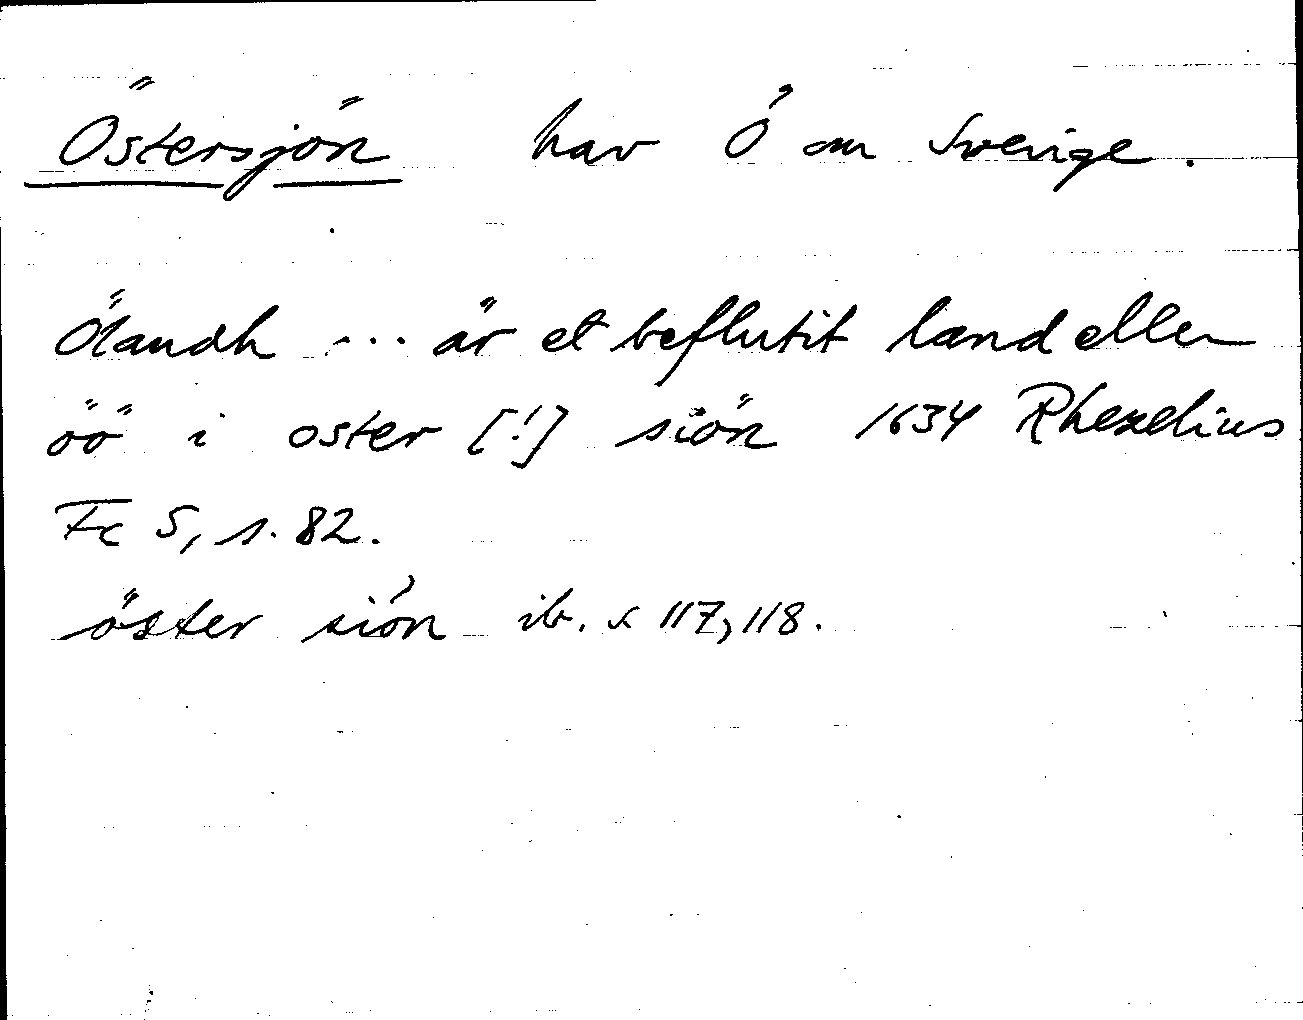 Östersjön hav Ö om Sverige.
Ölandh ... är et beflutit land eller
öö i oster [!] siön 1634 Rhezelius
Fc 5, s. 82.
öster siön ib. s 117, 118.